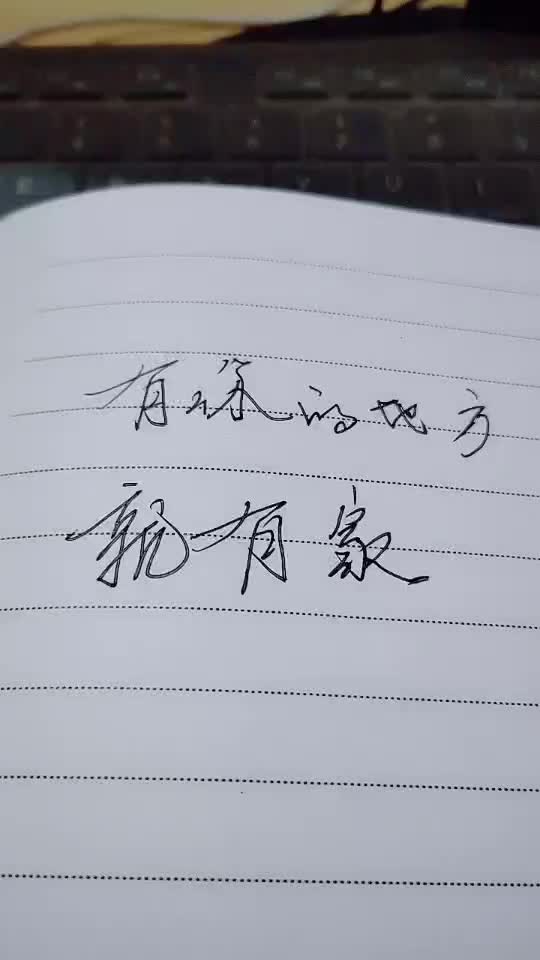 有的地方
就有家